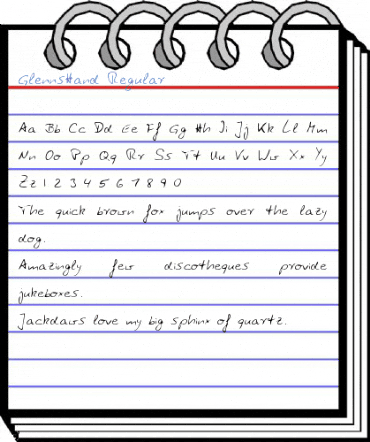 GlennsHand Regular
Aa Bb Cc Dd Ee Ff Gg Hh Ii Jj Kk Ll Mm
Nn Oo Pp Qq Rr Ss Tt Uu Vv Ww Xx Yy
Zz 1 2 3 4 5 6 7 8 9 0
The quick brown fox jumps over the lazy
dog.
Amazingly few discotheques provide
jukeboxes.
Jackdaws love my big sphinx of quartz.